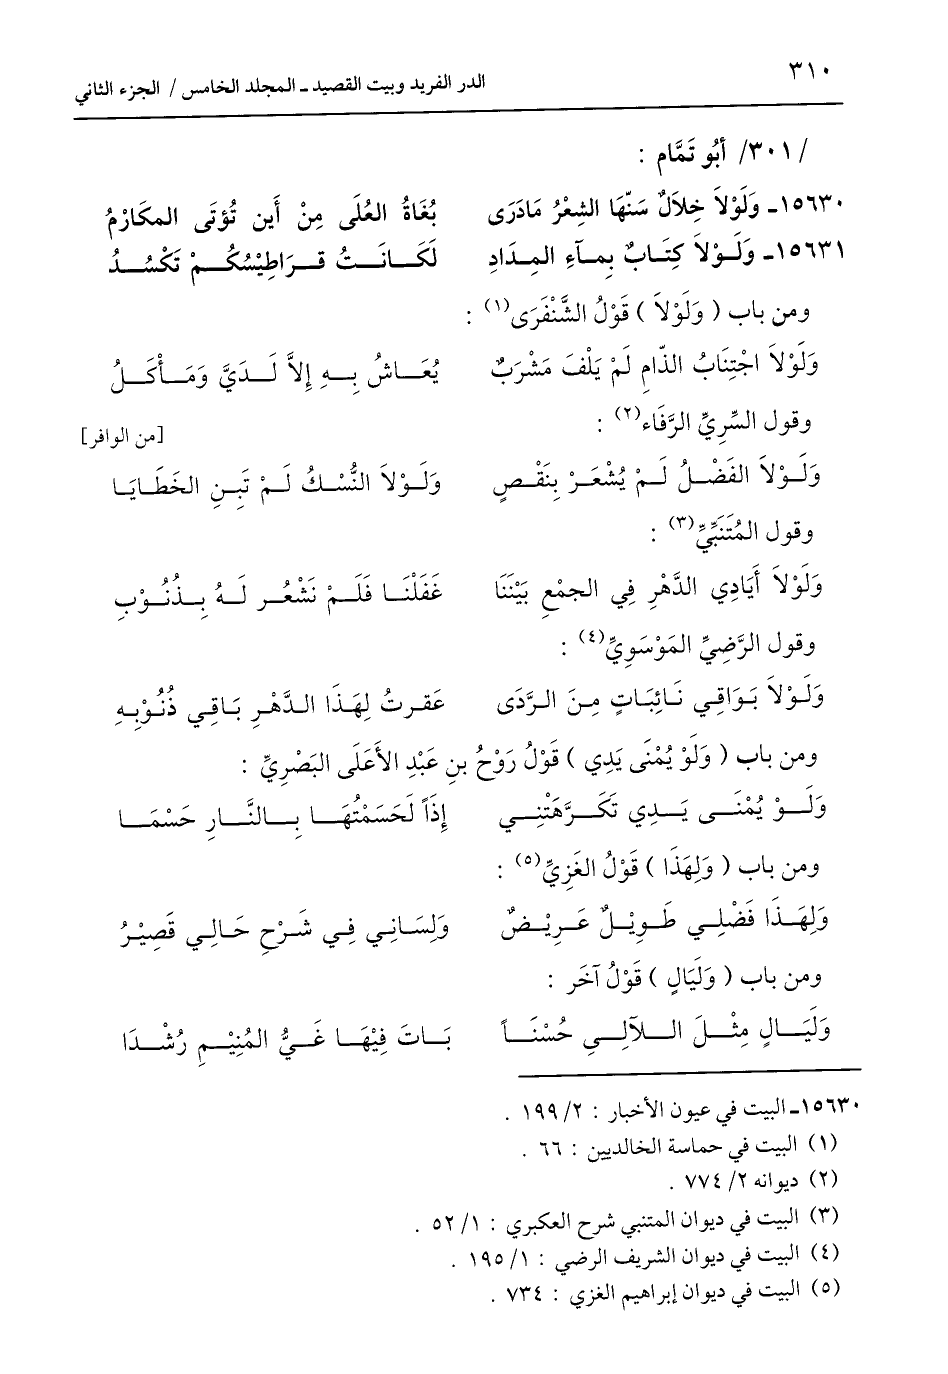 ٣١٠
الدر الفريد وبيت القصيد ـ المجلد الخامس / الجزء الثاني
/٣٠١/ أَبُو تَمَّام :
١٥٦٣٠ـ وَلَوْلاَ خِلاَلٌ سَنَّهَا الشِعْرُ مَادَرَى بُغَاةُ العُلَى مِنْ أَين تُؤتَى المكَارْمُ
١٥٦٣١ـ وَلَوْلاَ كِتَابٌ بِمآءِ المِدَادِ لَكَانَتُ قرَاطِيْسُكُمْ تَكْسُدُ
ومن باب ( وَلَوْلاَ ) قَوْلُ الشَّنْفَرَى(١) :
وَلَوْلاَ اجْتِنَابُ الذّامِ لَمْ يَلْفَ مَشْرَبٌ يُعَاشُ بِهِ إِلاَّ لَدَيَّ وَمَأْكَلُ
وقول السِّريِّ الرَّفَاء(٢) :
[من الوافر]
وَلَوْلاَ الفَضْلُ لَمْ يُشْعَرْ بِنَقْصٍ وَلَوْلاَ النُّسْكُ لَمْ تَبِنِ الخَطَايَا
وقول المُتَنَبِّيِّ(٣) :
وَلَوْلاَ أَيَادِي الدَّهْرِ فِي الجمْعِ بَيْنَنَا غَفَلْنَا فَلَمْ نَشْعُر لَهُ بِذُنُوْبِ
وقول الرَّضِيِّ المَوْسَوِيِّ(٤) :
وَلَوْلاَ بَوَاقِي نَائِبَاتٍ مِنَ الرَّدَى عَقرتُ لِهَذَا الدَّهْرِ بَاقِي ذُنُوْبِهِ
ومن باب ( وَلَوْ يُمْنَى يَدِي ) قَوْلُ رَوْحُ بنِ عَبْدِ الأَعَلَى البَصْرِيِّ :
وَلَوْ يُمْنَى يَدِي تَكَرَّهَتْنِي إِذَاً لَحَسَمْتُهَا بِالنَّارِ حَسْمَا
ومن باب ( وَلِهَذَا ) قَوْلُ الغَزِيِّ(٥) :
وَلِهَذَا فَضْلِي طَوِيْلٌ عَرِيْضٌ وَلِسَانِي فِي شَرْحِ حَالِي قَصِيْرُ
ومن باب ( وَلَيَالٍ ) قَوْلُ آخَر :
وَلَيَالٍ مِثْلَ اللآلِي حُسْنَاً بَاتَ فِيْهَا غَيُّ المُنِيْمِ رُشْدَا
١٥٦٣٠ـ البيت في عيون الأخبار : ٢/ ١٩٩ .
(١) البيت في حماسة الخالديين : ٦٦ .
(٢) ديوانه ٢/ ٧٧٤ .
(٣) البيت في ديوان المتنبي شرح العكبري : ١/ ٥٢ .
(٤) البيت في ديوان الشريف الرضي : ١/ ١٩٥ .
(٥) البيت في ديوان إبراهيم الغزي : ٧٣٤ .